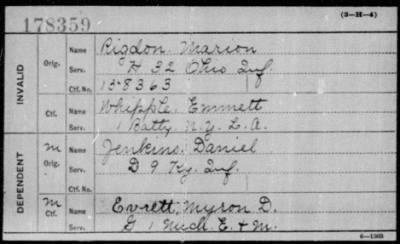 178359
(3-H-4)
INVALID
Orig.
Name Rigdon Marion
Serv. H 32 Ohio Inf.
Ctf. No. 158363
Ctf.
Name Whipple, Emmett
Serv. 1 Batty N.Y. L.A.
DEPENDENT
M Orig.
Name Jenkins, Daniel
Serv. D 9 Ky. Inf.
Ctf. No.
M Ctf.
Name Everett, Myron D.
Serv. G 1 Mich. E. & M.